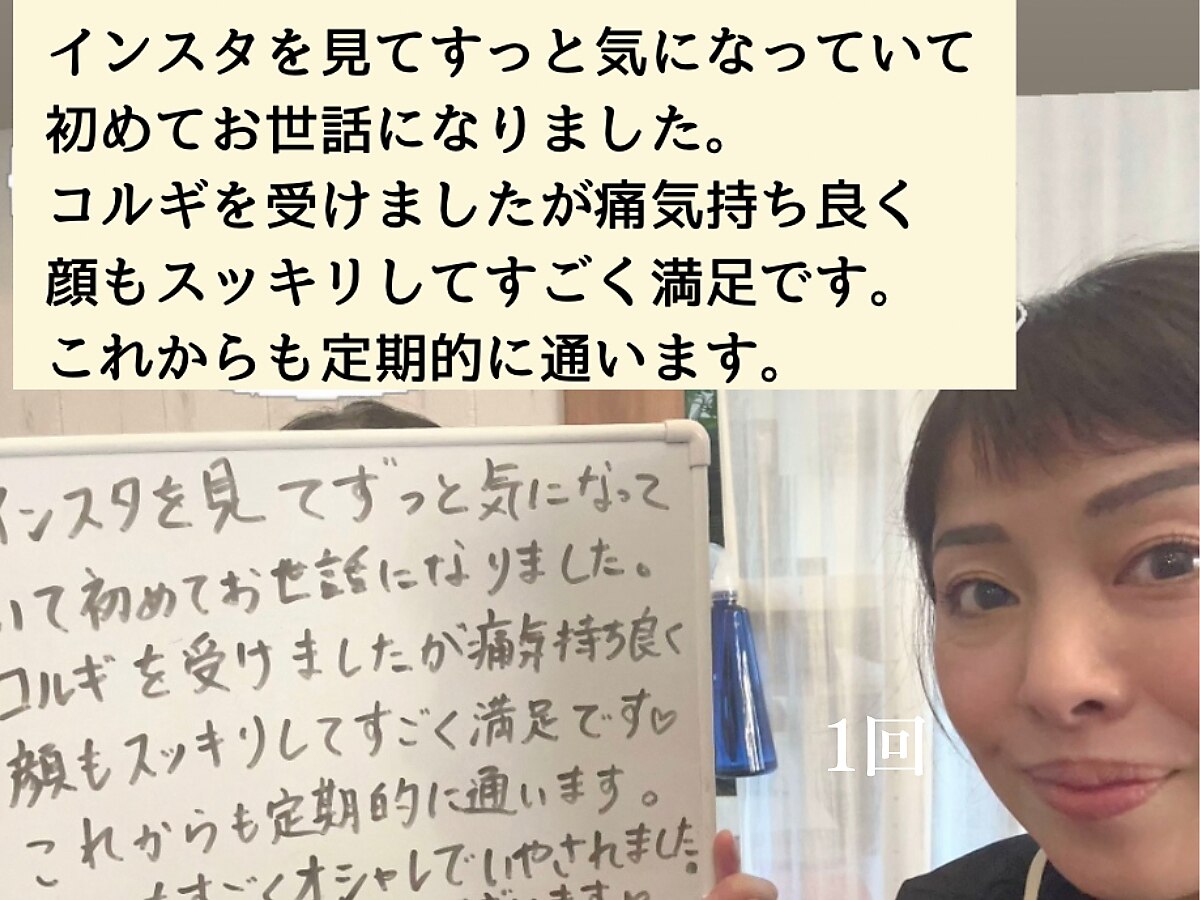 インスタを見てすっと気になっていて
初めてお世話になりました。
コルギを受けましたが痛気持ち良く
顔もスッキリしてすごく満足です。
これからも定期的に通います。
インスタを見てずっと気になって
いて初めてお世話になりました。
コルギを受けましたが痛気持ち良く
顔もスッキリしてすごく満足です♡
これからも定期的に通います。
もすごくオシャレでいやされました。
ございます♡
1回